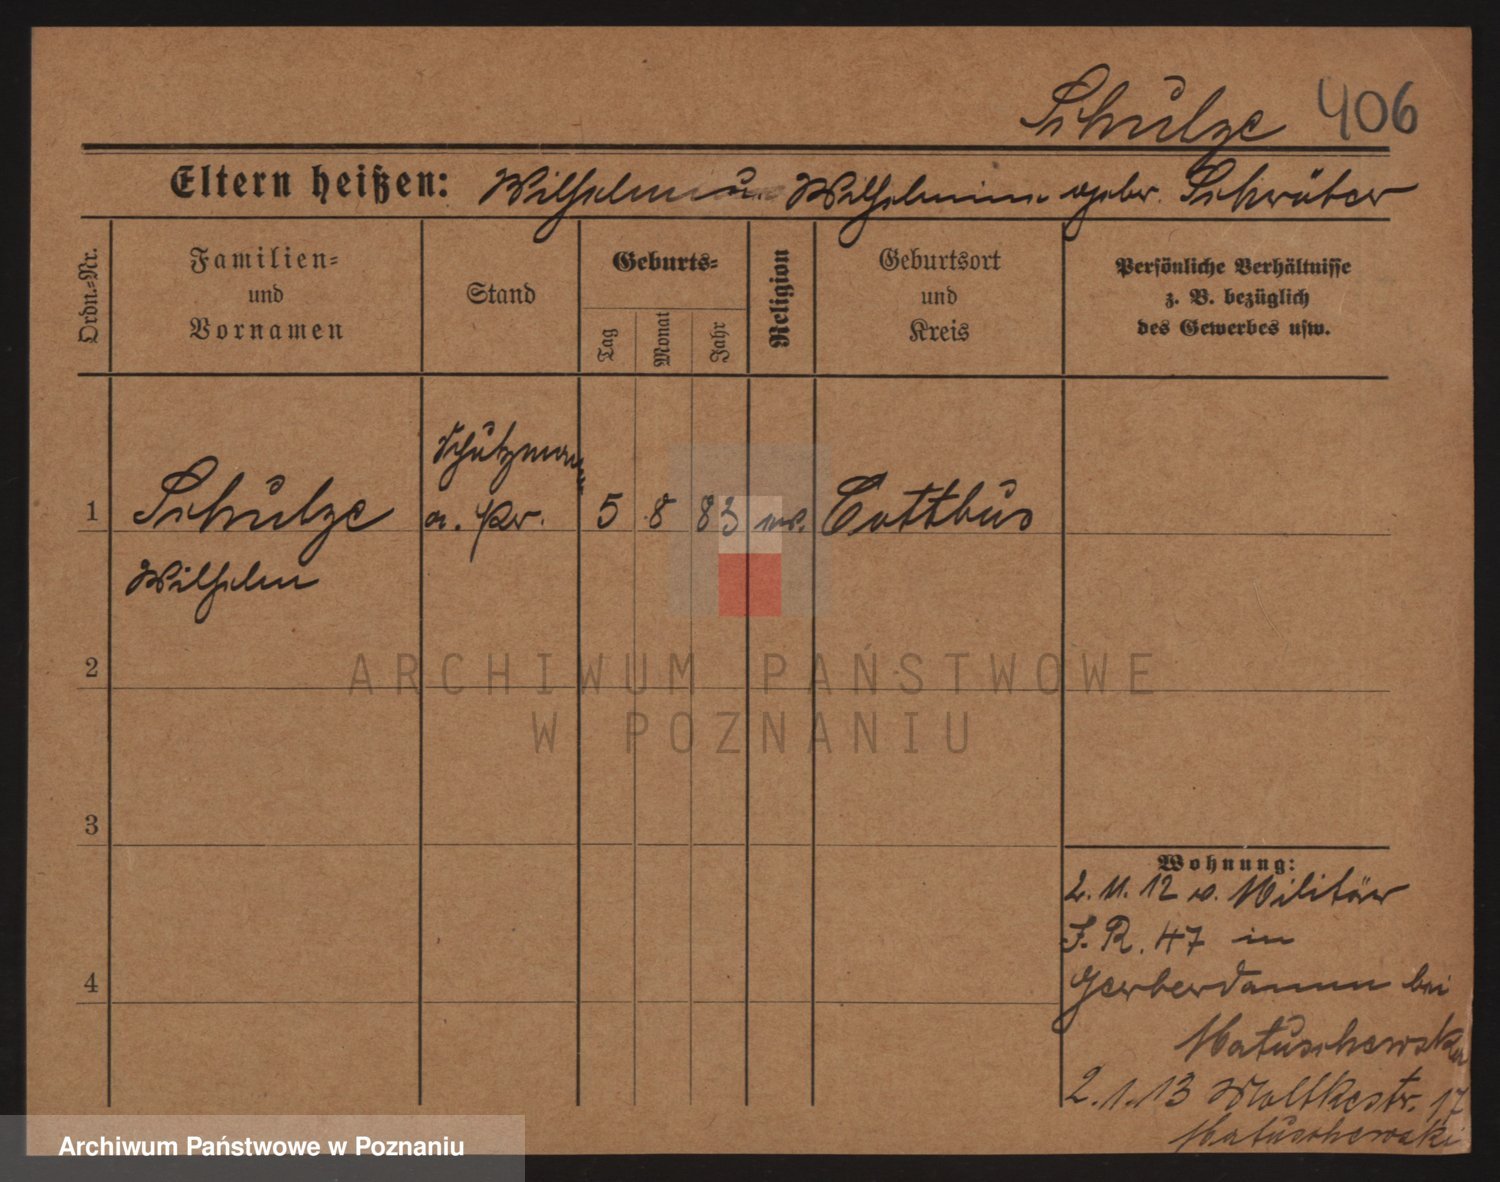 Schulze 406
Eltern heißen: Wilhelm u. Wilhelmine gebr. Schröter
Ordn.-Nr.
Familien-
und
Vornamen
Stand
Geburts-
Tag
Monat
Jahr
Religion
Geburtsort
und
Kreis
Persönliche Verhältnisse
z. B. bezüglich
des Gewerbes usw.
Schutzmann
1 Schulze a. Pr. 5 8 83 ev. Cottbus
Wilhelm
2
ARCHIWUM PAŃSTWOWE
W POZNANIU
3
Wohnung:
2. 11. 12 v. Militär
J. R. 47 in
4
Gerberdamm bei
Matuschewski
2. 1. 13 Moltkestr. 17
Matuschewski
Archiwum Państwowe w Poznaniu